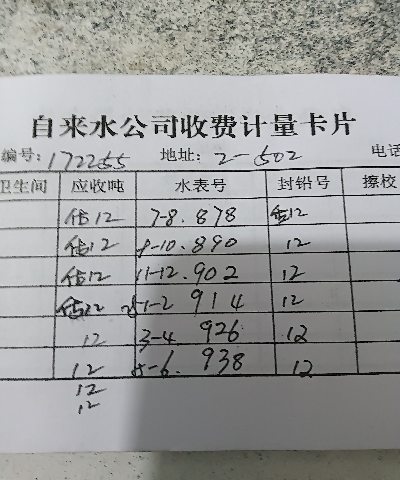 自来水公司收费计量卡片
编号: 172255 地址: 2-502 电话
卫生间 应收吨 水表号 封铅号 擦校
估12 7-8. 878 估12
估12 9-10. 890 12
估12 11-12. 902 12
估12 1-2 914 12
12 3-4 926 12
12 5-6. 938 12
12
12